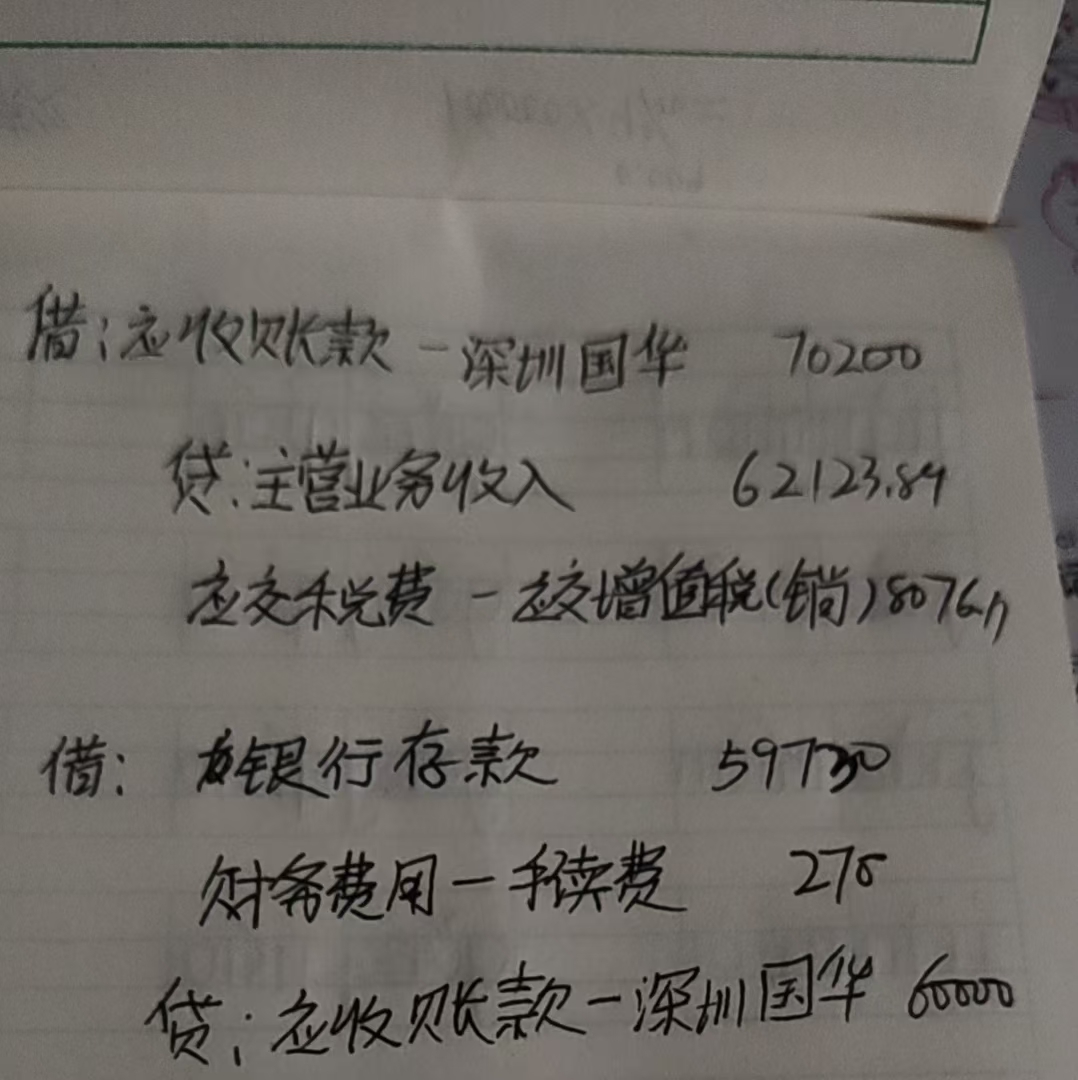 借：应收账款－深圳国华 70200
贷：主营业务收入 62123.89
应交税费－应交增值税（销）8076.11
借：银行存款 59730
财务费用－手续费 270
贷：应收账款－深圳国华 60000